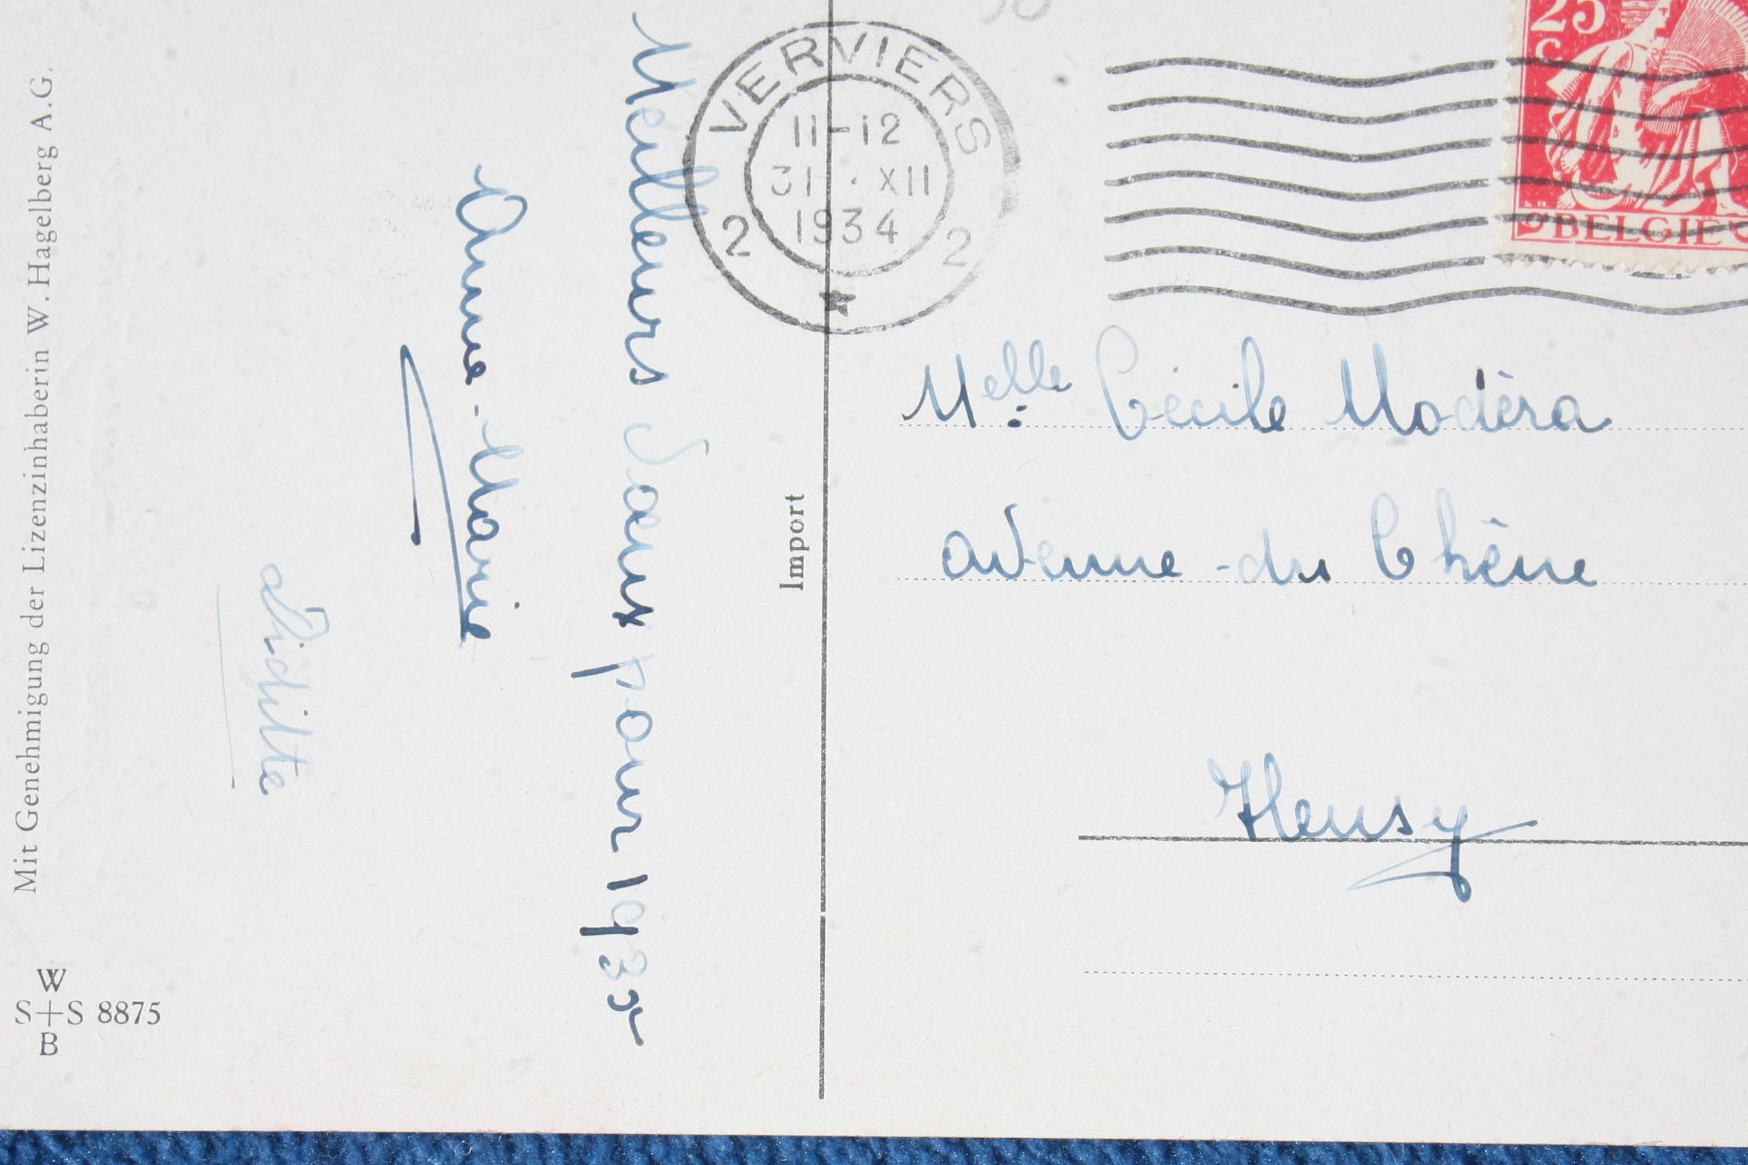 Mit Genehmigung der Lizenzinhaberin W. Hagelberg A.G.
W
S+S 8875
B
Meilleurs Vœux pour 1935
Anne-Marie
Import
VERVIERS
11-12
31 · XII
1934
2 2
25
C
BELGIE
Melle Cécile Modéra
avenue du Chêne
Heusy